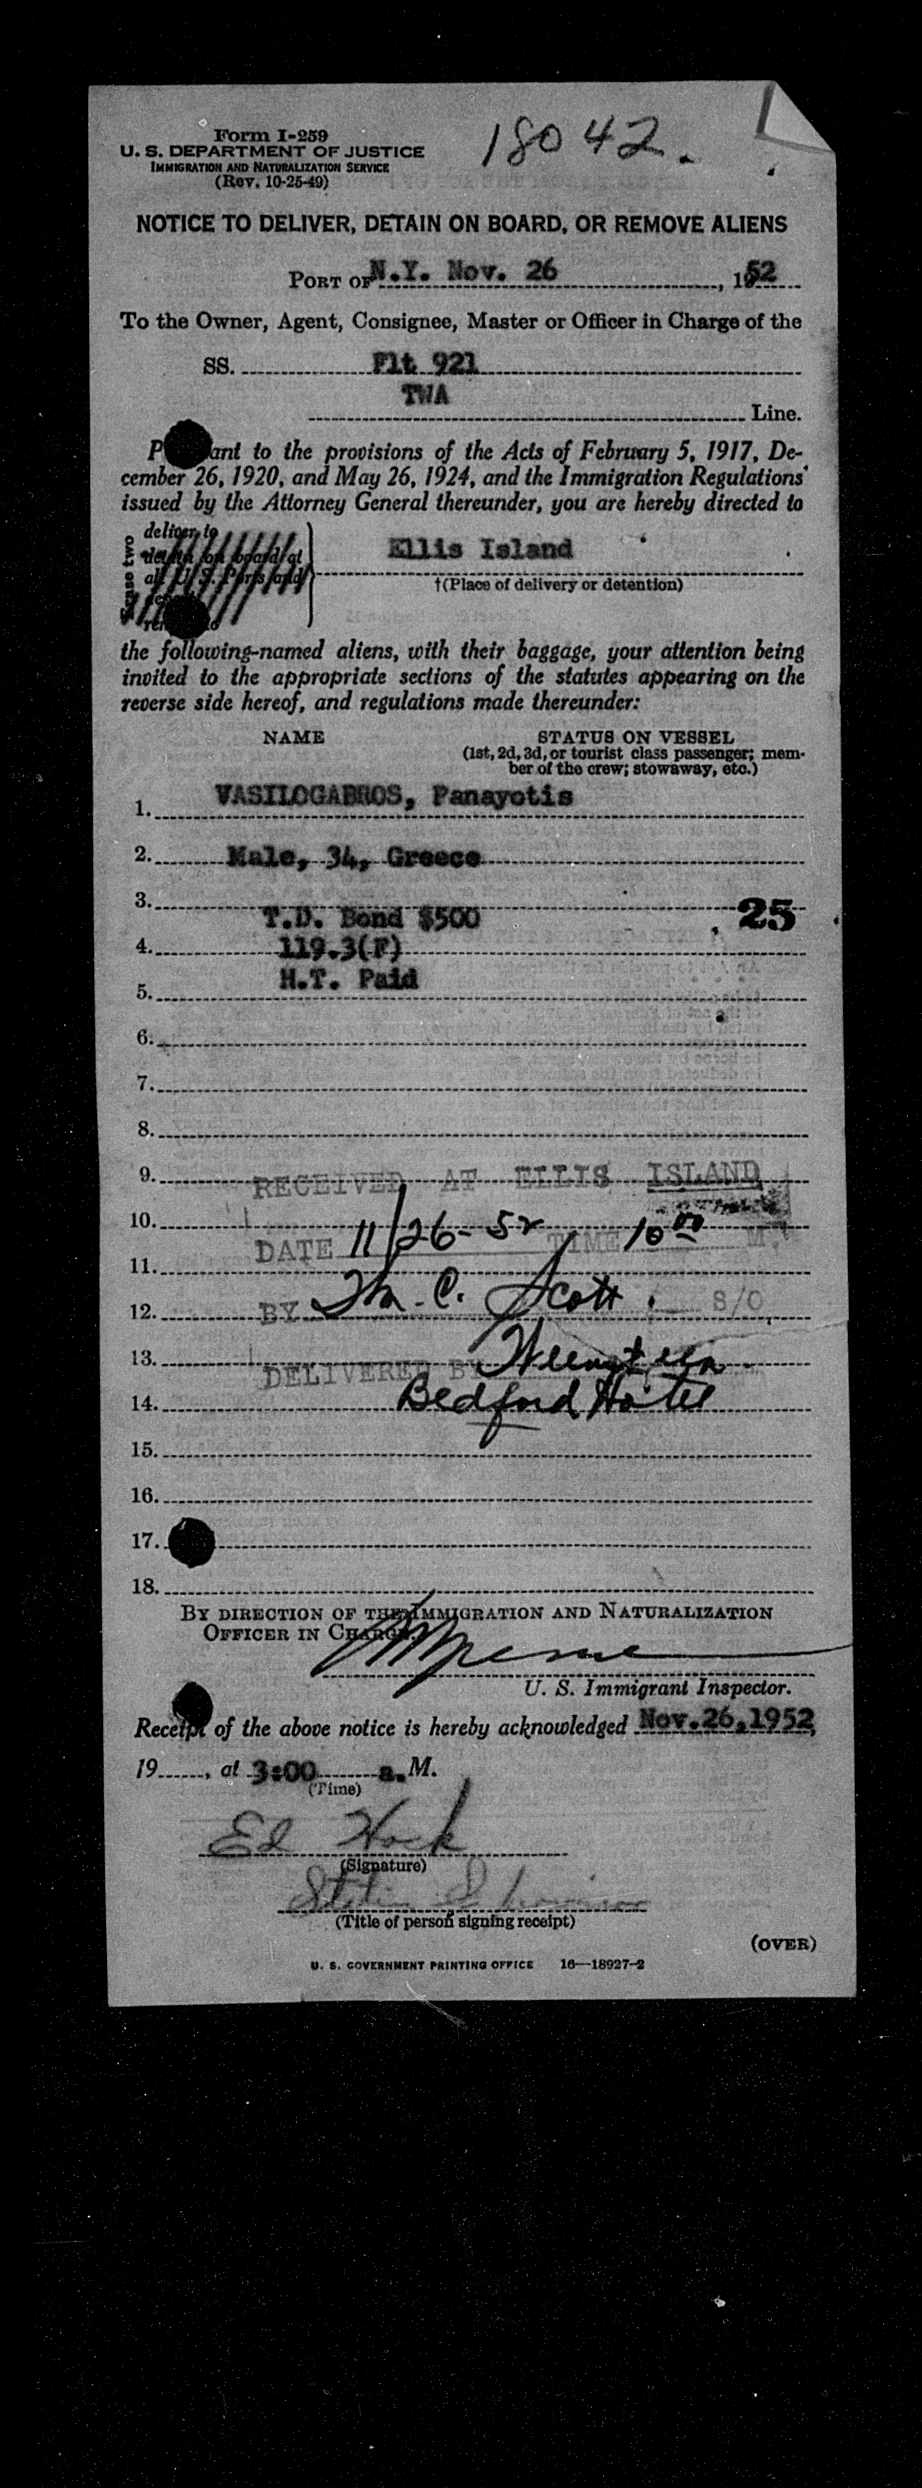 Form I-259
U. S. DEPARTMENT OF JUSTICE
IMMIGRATION AND NATURALIZATION SERVICE
(Rev. 10-25-49)
18042.
NOTICE TO DELIVER, DETAIN ON BOARD, OR REMOVE ALIENS
PORT OF N.Y. Nov. 26, 1952
To the Owner, Agent, Consignee, Master or Officer in Charge of the
SS. Flt 921
TWA Line.
P ant to the provisions of the Acts of February 5, 1917, De-
cember 26, 1920, and May 26, 1924, and the Immigration Regulations
issued by the Attorney General thereunder, you are hereby directed to
deliver to
detain on board at
all U. S. Ports and
Ellis Island
†(Place of delivery or detention)
the following-named aliens, with their baggage, your attention being
invited to the appropriate sections of the statutes appearing on the
reverse side hereof, and regulations made thereunder:
NAME STATUS ON VESSEL
(1st, 2d, 3d, or tourist class passenger; mem-
ber of the crew; stowaway, etc.)
1. VASILOGABROS, Panayotis
2. Male, 34, Greece
3. T.D. Bond $500 25
4. 119.3(F)
5. H.T. Paid
6.
7.
8.
9. RECEIVED AT ELLIS ISLAND
10.
DATE 11/26-52 TIME 10 00 M.
11.
12. BY Wm. C. Scott. S/O
13. DELIVERED BY
14. Bedford Hotel
15.
16.
17.
18.
BY DIRECTION OF THE IMMIGRATION AND NATURALIZATION
OFFICER IN CHARGE.
U. S. Immigrant Inspector.
Receipt of the above notice is hereby acknowledged Nov. 26, 1952,
19, at 3:00 a. M.
(Time)
Ed Hock
(Signature)
(Title of person signing receipt)
(OVER)
U. S. GOVERNMENT PRINTING OFFICE 16—18927-2